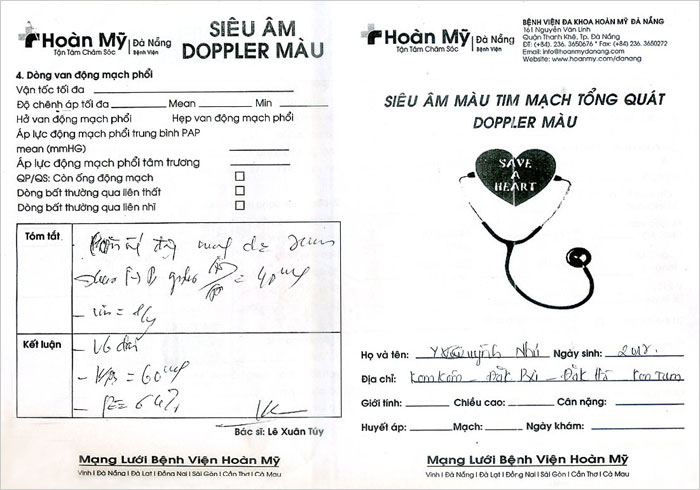 Hoàn Mỹ Đà Nẵng
Tận Tâm Chăm Sóc Bệnh Viện
SIÊU ÂM
DOPPLER MÀU
4. Dòng van động mạch phổi
Vận tốc tối đa
Độ chênh áp tối đa Mean Min
Hở van động mạch phổi Hẹp van động mạch phổi
Áp lực động mạch phổi trung bình PAP
mean (mmHG)
Áp lực động mạch phổi tâm trương
QP/QS: Còn ống động mạch
Dòng bất thường qua liên thất
Dòng bất thường qua liên nhĩ
Tóm tắt
Kết luận
Bác sĩ: Lê Xuân Túy
Mạng Lưới Bệnh Viện Hoàn Mỹ
Vinh I Đà Nẵng I Đà Lạt I Đồng Nai I Sài Gòn I Cần Thơ I Cà Mau
Hoàn Mỹ Đà Nẵng
Tận Tâm Chăm Sóc Bệnh Viện
BỆNH VIỆN ĐA KHOA HOÀN MỸ ĐÀ NẴNG
161 Nguyễn Văn Linh
Quận Thanh Khê, Tp. Đà Nẵng
ĐT: (+84). 236. 3650676 * Fax: (+84). 236. 3650272
Email: info@hoanmydanang.com
Website: www.hoanmy.com/danang
SIÊU ÂM MÀU TIM MẠCH TỔNG QUÁT
DOPPLER MÀU
SAVE
A
HEART
Họ và tên: Như Ngày sinh:
Địa chỉ: Đắk Hà Kon Tum
Giới tính: Chiều cao: Cân nặng:
Huyết áp: Mạch: Ngày khám:
Mạng Lưới Bệnh Viện Hoàn Mỹ
Vinh I Đà Nẵng I Đà Lạt I Đồng Nai I Sài Gòn I Cần Thơ I Cà Mau